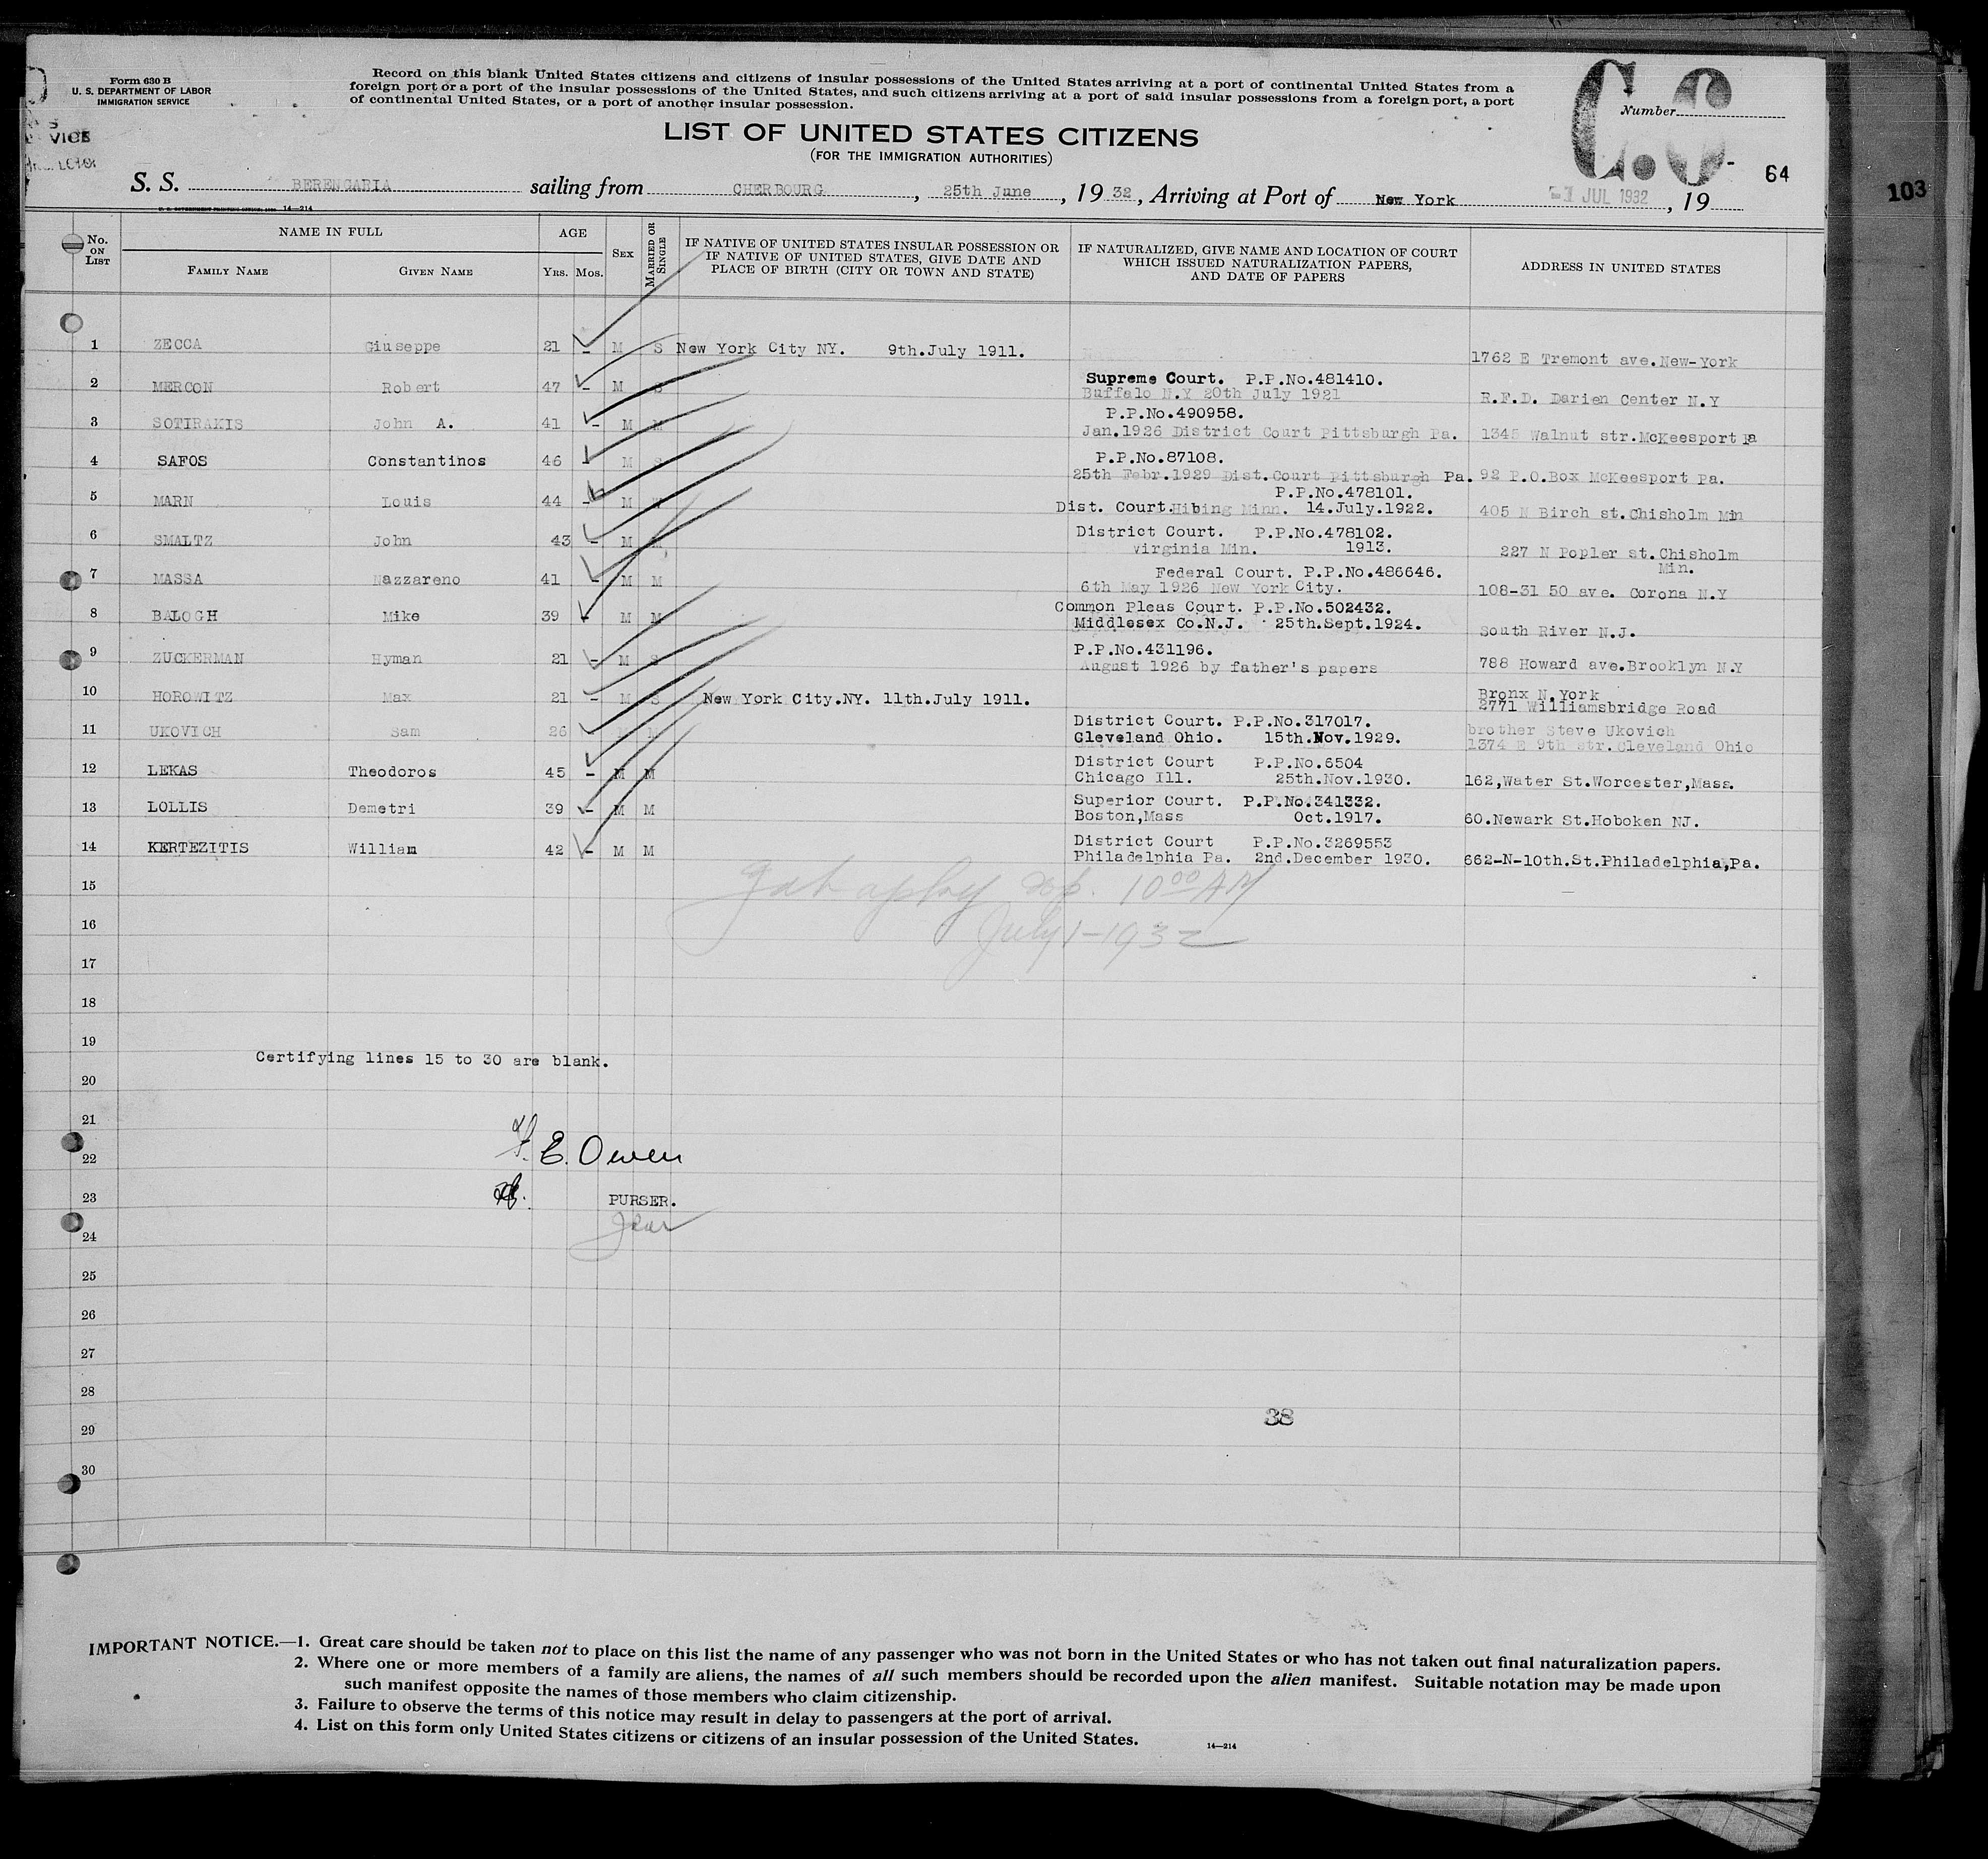 Form 630 B
U. S. DEPARTMENT OF LABOR
IMMIGRATION SERVICE
Record on this blank United States citizens and citizens of insular possessions of the United States arriving at a port of continental United States from a
foreign port or a port of the insular possessions of the United States, and such citizens arriving at a port of said insular possessions from a foreign port, a port
of continental United States, or a port of another insular possession.
C.O
Number
LIST OF UNITED STATES CITIZENS
(FOR THE IMMIGRATION AUTHORITIES)
64
103
S. S. BERENGARIA sailing from CHERBOURG, 25th June, 1932, Arriving at Port of New York -1 JUL 1932, 19
14—214
No. ON LIST
NAME IN FULL
FAMILY NAME GIVEN NAME
AGE
YRS. MOS.
SEX
MARRIED OR SINGLE
IF NATIVE OF UNITED STATES INSULAR POSSESSION OR
IF NATIVE OF UNITED STATES, GIVE DATE AND
PLACE OF BIRTH (CITY OR TOWN AND STATE)
IF NATURALIZED, GIVE NAME AND LOCATION OF COURT
WHICH ISSUED NATURALIZATION PAPERS,
AND DATE OF PAPERS
ADDRESS IN UNITED STATES
1 ZECCA Giuseppe 21 - M S New York City NY. 9th.July 1911. 1762 E Tremont ave.New-York
2 MERCON Robert 47 - M S Supreme Court. P.P.No.481410.
Buffalo N.Y 20th July 1921 R.F.D. Darien Center N.Y
3 SOTIRAKIS John A. 41 - M M P.P.No.490958.
Jan.1926 District Court Pittsburgh Pa. 1345 Walnut str.McKeesport Pa
4 SAFOS Constantinos 46 - M S P.P.No.87108.
25th Febr.1929 Dist.Court Pittsburgh Pa. 92 P.O.Box McKeesport Pa.
5 MARN Louis 44 - M P.P.No.478101.
Dist. Court.Hibing Minn. 14.July.1922. 405 N Birch st.Chisholm Min
6 SMALTZ John 43 - M M District Court. P.P.No.478102.
Virginia Min. 1913. 227 N Popler st.Chisholm
Min.
7 MASSA Nazzareno 41 - M M Federal Court. P.P.No.486646.
6th May 1926 New York City. 108-31 50 ave. Corona N.Y
8 BALOGH Mike 39 - M M Common Pleas Court. P.P.No.502432.
Middlesex Co.N.J. 25th.Sept.1924. South River N.J.
9 ZUCKERMAN Hyman 21 - M S P.P.No.431196.
August 1926 by father's papers 788 Howard ave.Brooklyn N.Y
10 HOROWITZ Max 21 - M S New York City.NY. 11th.July 1911. Bronx N.York
2771 Williamsbridge Road
11 UKOVICH Sam 26 M District Court. P.P.No.317017. brother Steve Ukovich
Cleveland Ohio. 15th.Nov.1929. 1374 E 9th str.Cleveland Ohio
12 LEKAS Theodoros 45 - M M District Court P.P.No.6504
Chicago Ill. 25th.Nov.1930. 162,Water St.Worcester,Mass.
13 LOLLIS Demetri 39 - M M Superior Court. P.P.No.341332.
Boston,Mass Oct.1917. 60.Newark St.Hoboken NJ.
14 KERTEZITIS William 42 - M M District Court P.P.No.3269553
Philadelphia Pa. 2nd.December 1930. 662-N-10th.St.Philadelphia,Pa.
15
10 00 AM
16
July 1-1932
17
18
19
Certifying lines 15 to 30 are blank.
20
21
22
E. Owen
23
PURSER.
24
25
26
27
28
29
38
30
IMPORTANT NOTICE.—1. Great care should be taken not to place on this list the name of any passenger who was not born in the United States or who has not taken out final naturalization papers.
2. Where one or more members of a family are aliens, the names of all such members should be recorded upon the alien manifest. Suitable notation may be made upon
such manifest opposite the names of those members who claim citizenship.
3. Failure to observe the terms of this notice may result in delay to passengers at the port of arrival.
4. List on this form only United States citizens or citizens of an insular possession of the United States.
14—214